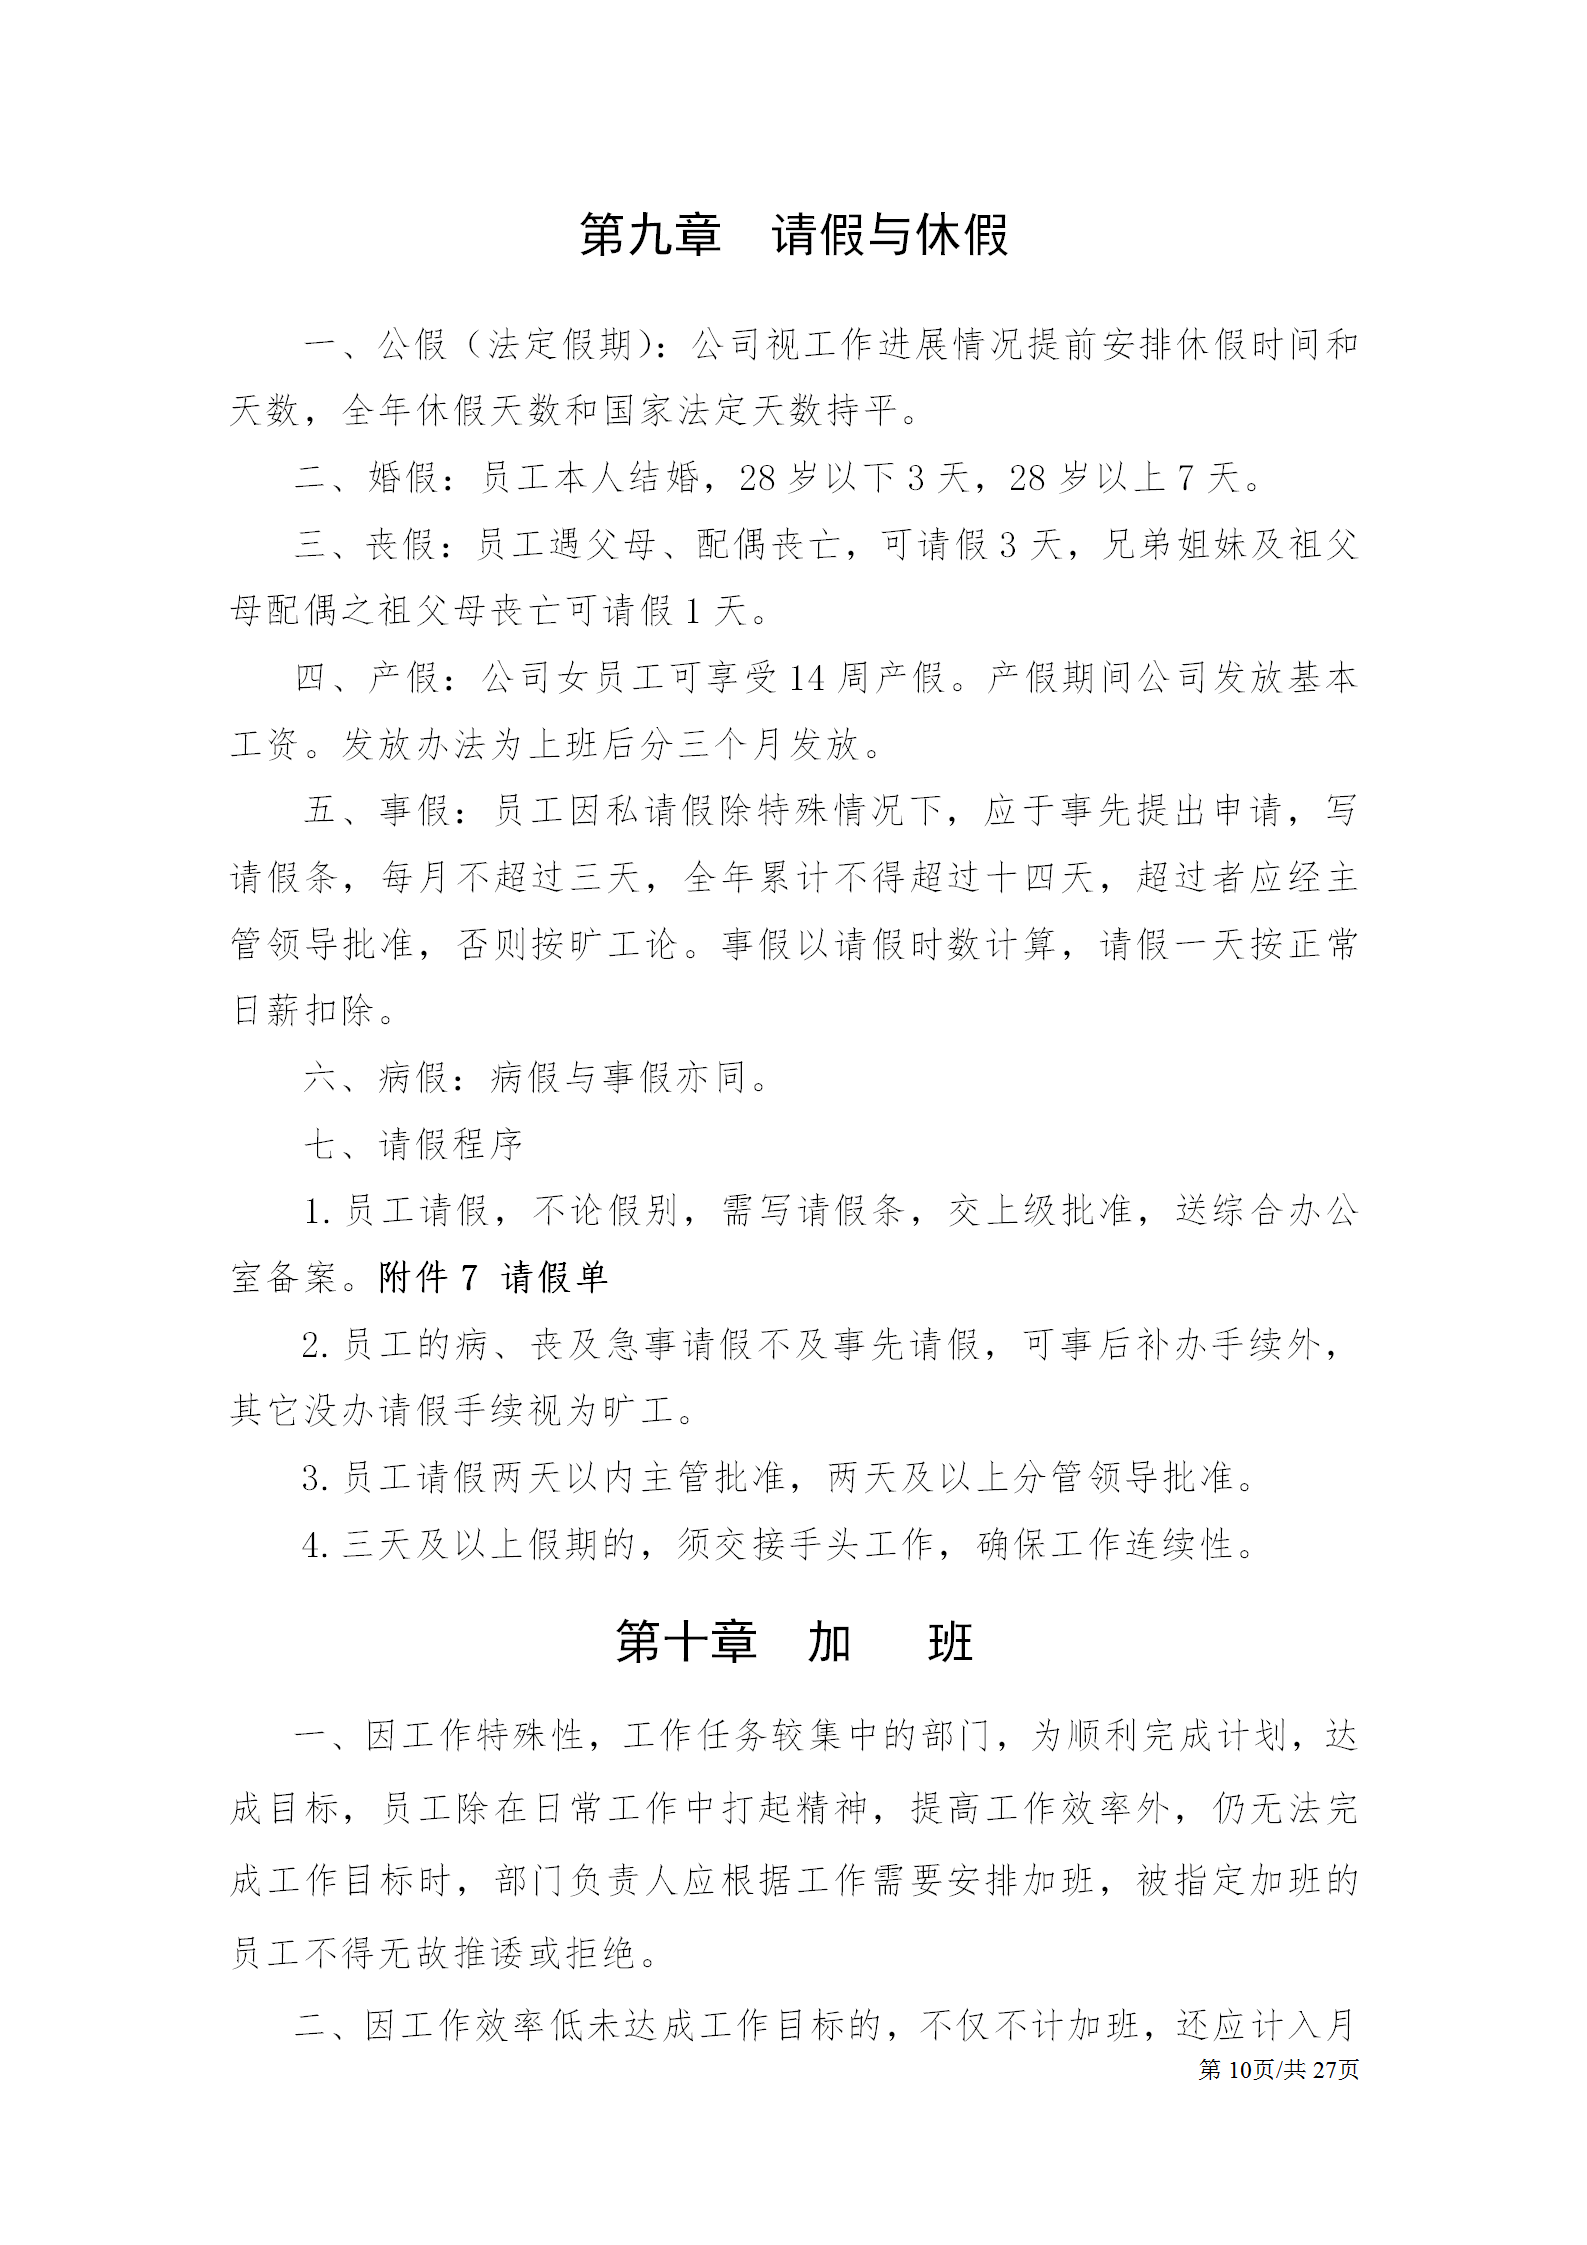 第九章　请假与休假
一、公假（法定假期）：公司视工作进展情况提前安排休假时间和
天数，全年休假天数和国家法定天数持平。
二、婚假：员工本人结婚，28岁以下3天，28岁以上7天。
三、丧假：员工遇父母、配偶丧亡，可请假3天，兄弟姐妹及祖父
母配偶之祖父母丧亡可请假1天。
四、产假：公司女员工可享受14周产假。产假期间公司发放基本
工资。发放办法为上班后分三个月发放。
五、事假：员工因私请假除特殊情况下，应于事先提出申请，写
请假条，每月不超过三天，全年累计不得超过十四天，超过者应经主
管领导批准，否则按旷工论。事假以请假时数计算，请假一天按正常
日薪扣除。
六、病假：病假与事假亦同。
七、请假程序
1.员工请假，不论假别，需写请假条，交上级批准，送综合办公
室备案。附件7 请假单
2.员工的病、丧及急事请假不及事先请假，可事后补办手续外，
其它没办请假手续视为旷工。
3.员工请假两天以内主管批准，两天及以上分管领导批准。
4.三天及以上假期的，须交接手头工作，确保工作连续性。
第十章　加　班
一、因工作特殊性，工作任务较集中的部门，为顺利完成计划，达
成目标，员工除在日常工作中打起精神，提高工作效率外，仍无法完
成工作目标时，部门负责人应根据工作需要安排加班，被指定加班的
员工不得无故推诿或拒绝。
二、因工作效率低未达成工作目标的，不仅不计加班，还应计入月
第 10页/共 27页